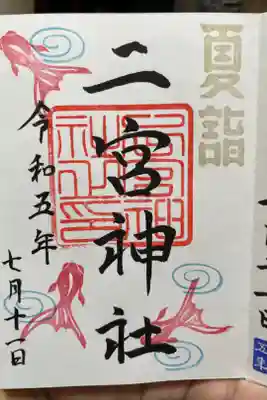 夏詣
二宮神社
令和五年
七月十一日